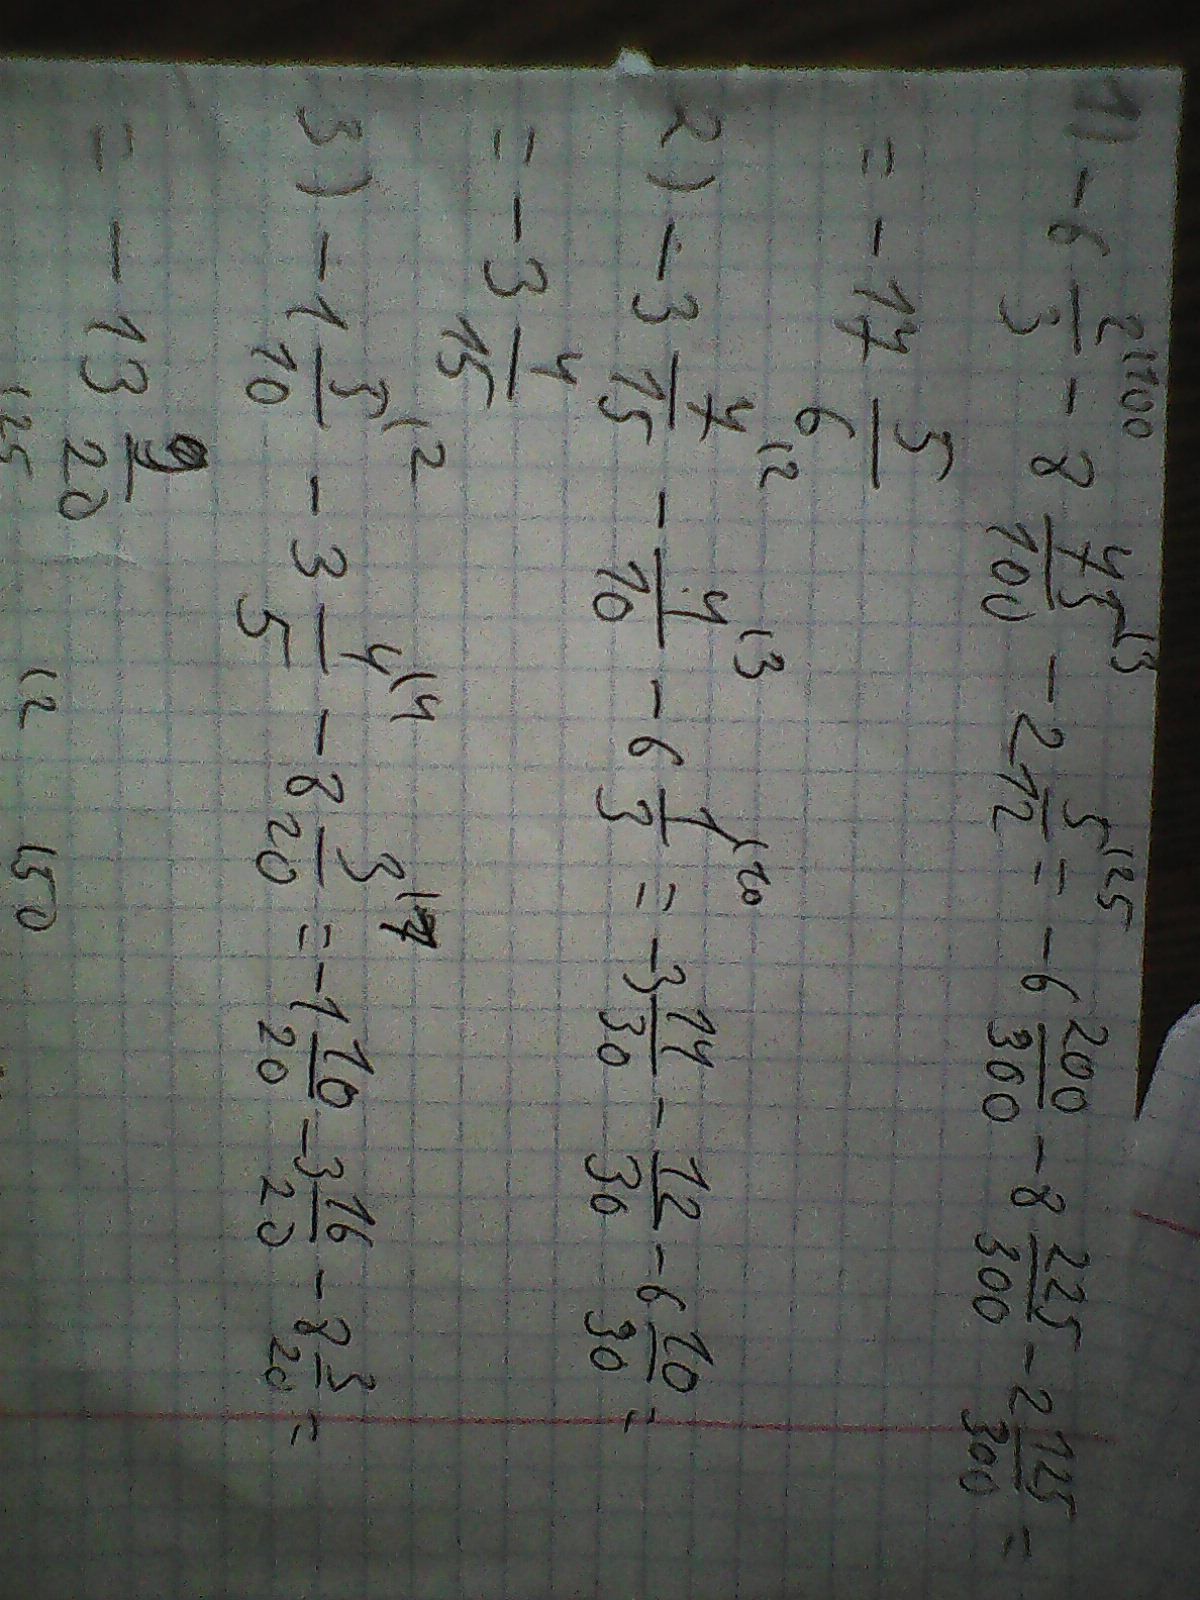 1) - 6 2/3 ⁽¹⁰⁰ - 8 75/100 ⁽³ - 2 5/12 ⁽²⁵ = - 6 200/300 - 8 225/300 - 2 125/300 =
= - 17 5/6
2) - 3 7/15 ⁽² - 4/10 ⁽³ - 6 1/3 ⁽¹⁰ = - 3 14/30 - 12/30 - 6 10/30 =
= - 3 4/15
3) - 1 5/10 ⁽² - 3 4/5 ⁽⁴ - 8 3/20 ⁽¹ = - 1 10/20 - 3 16/20 - 8 3/20 =
= - 13 9/20
⁽²⁵ ⁽² ⁽⁵⁰